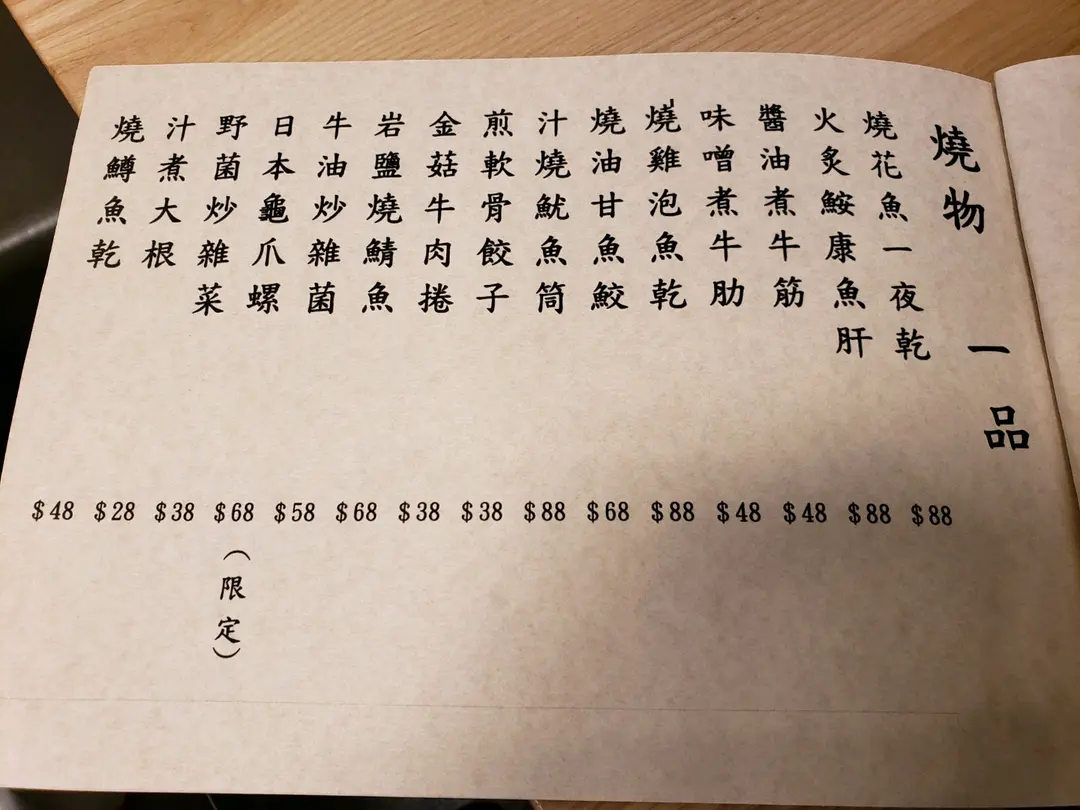 燒物 一品
燒花魚一夜乾 $88
火炙鮟康魚肝 $88
醬油煮牛筋 $48
味噌煮牛肋 $48
燒雞泡魚乾 $88
燒油甘魚鮫 $68
汁燒魷魚筒 $88
煎軟骨餃子 $38
金菇牛肉捲 $38
岩鹽燒鯖魚 $68
牛油炒雜菌 $58
日本龜爪螺 $68 (限定)
野菌炒雜菜 $38
汁煮大根 $28
燒鱒魚乾 $48